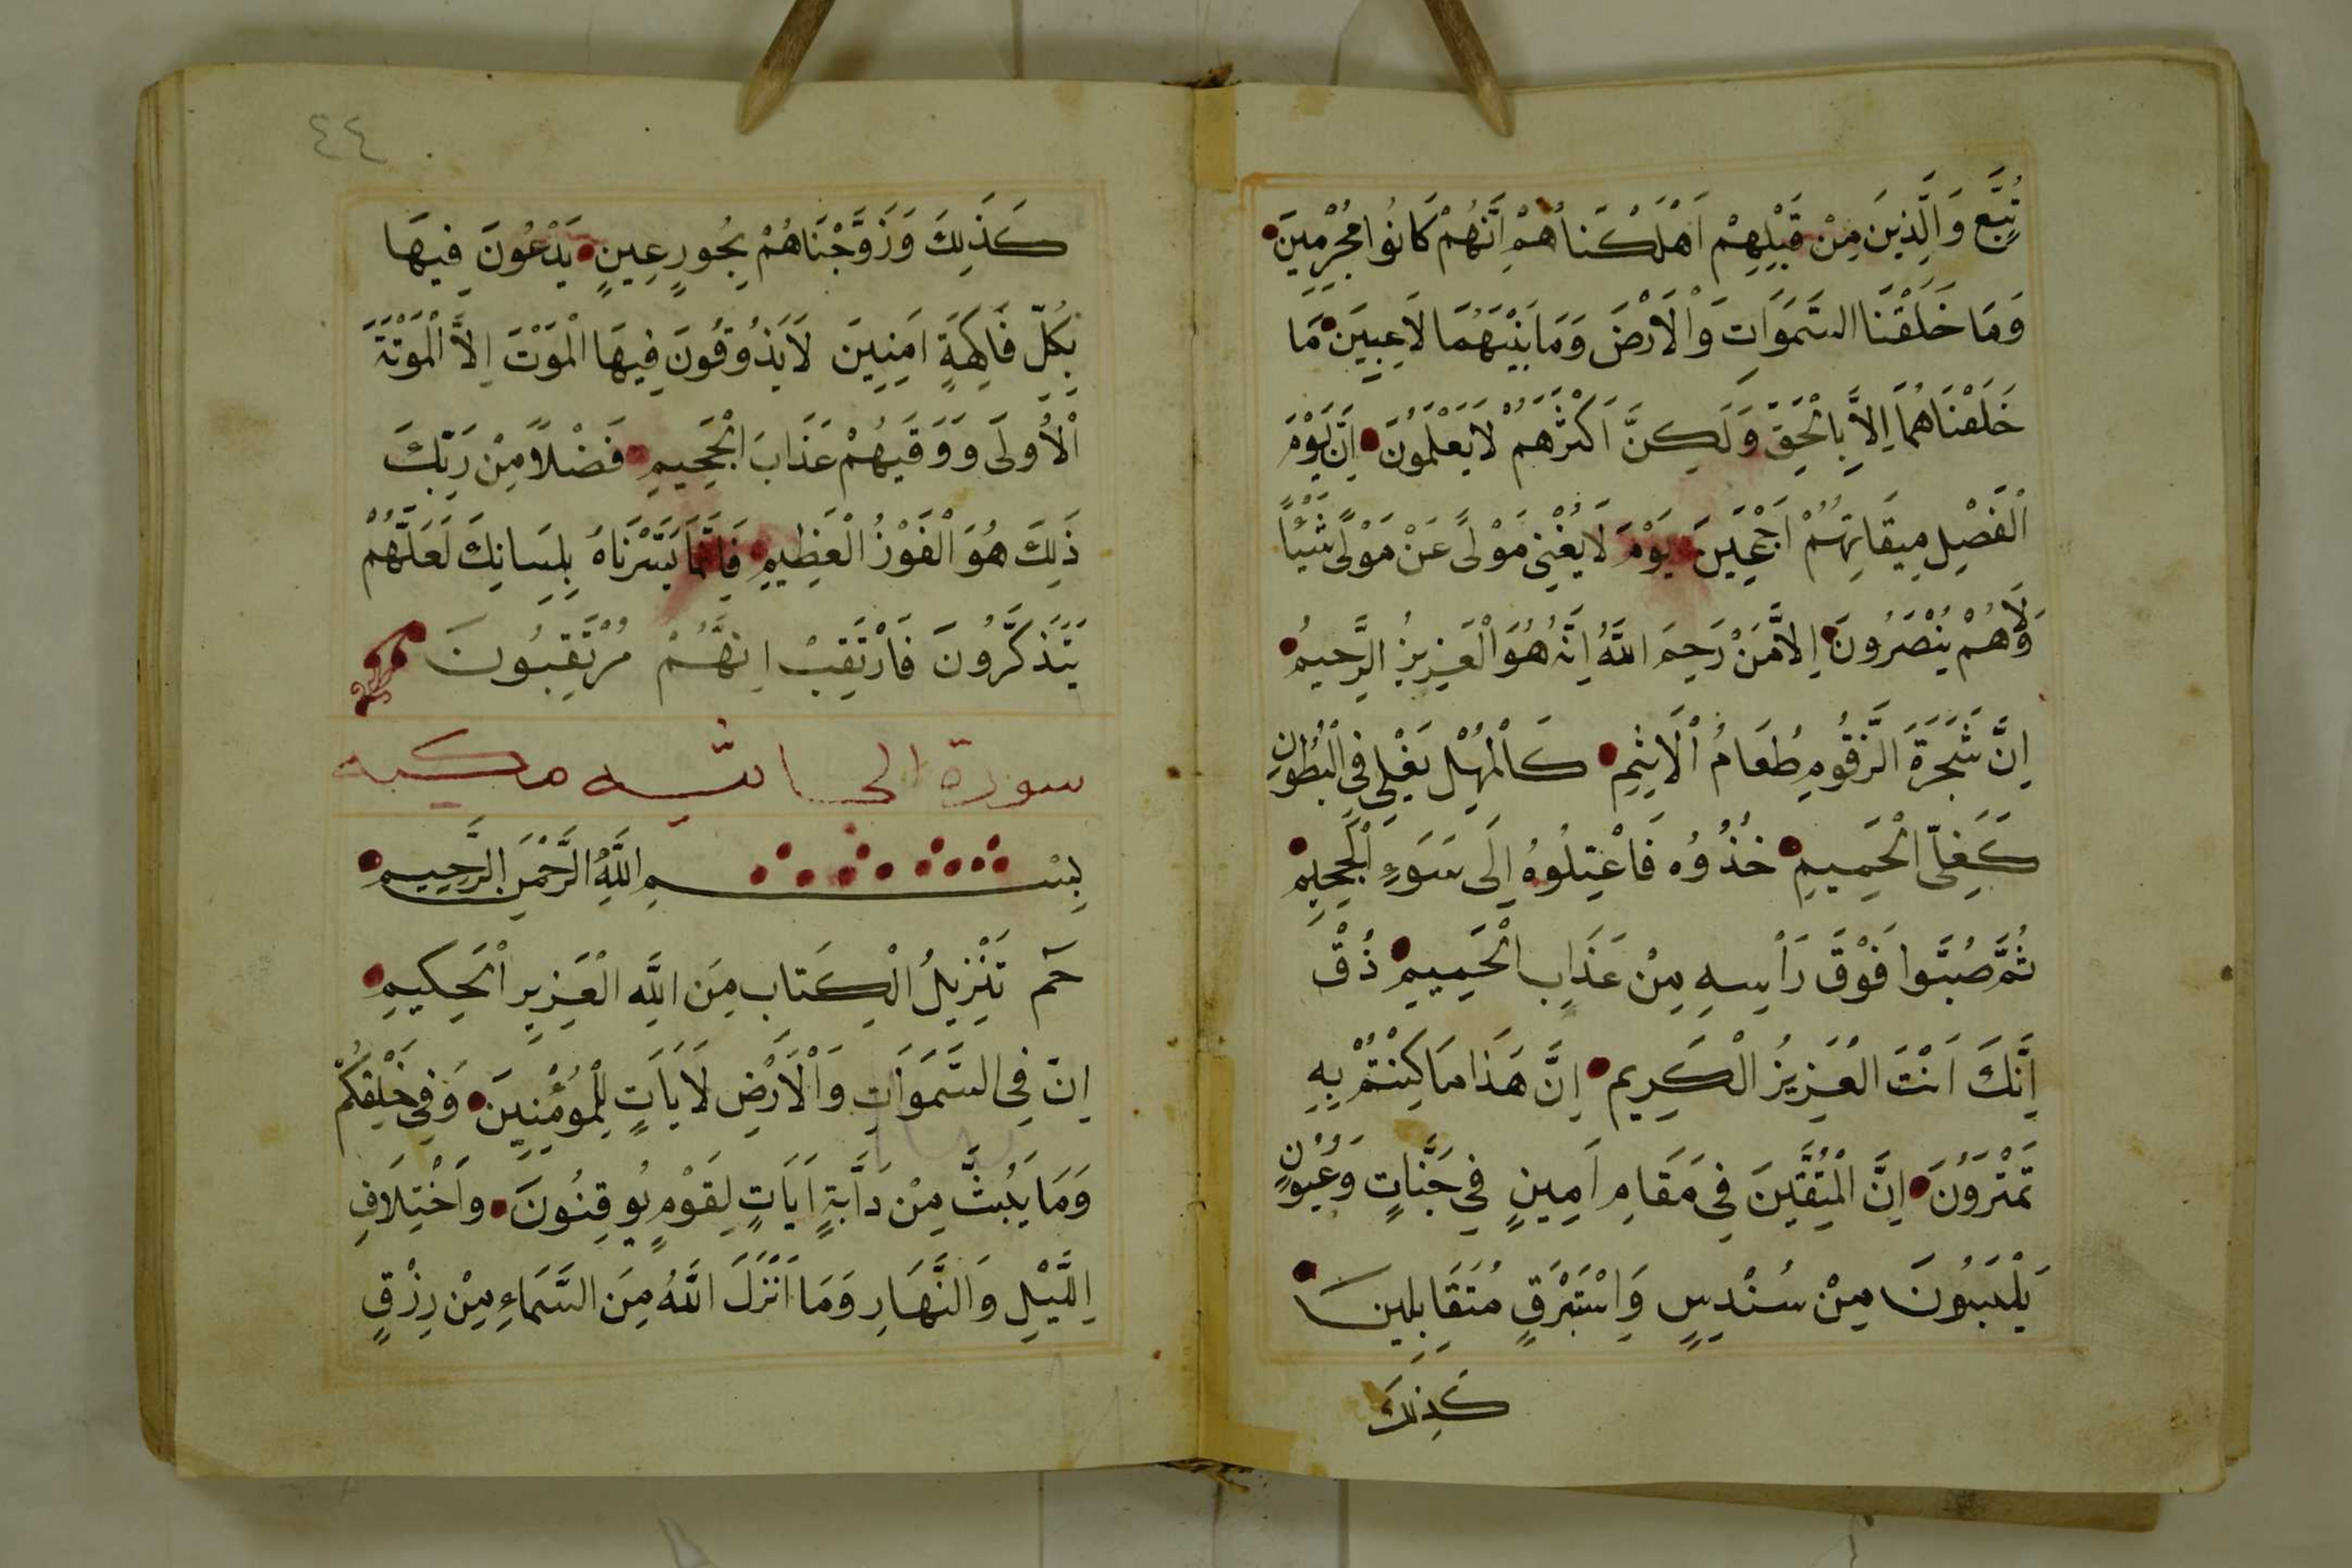 تُبَّعٍ وَالَّذِينَ مِنْ قَبْلِهِمْ اَهْلَكْنَاهُمْ اِنَّهُمْ كَانُوا مُجْرِمِينَ
وَمَا خَلَقْنَا السَّمَوَاتِ وَالْاَرْضَ وَمَا بَيْنَهُمَا لَاعِبِينَ مَا
خَلَقْنَاهُمَا اِلَّا بِالْحَقِّ وَلَكِنَّ اَكْثَرَهُمْ لَا يَعْلَمُونَ اِنَّ يَوْمَ
الْفَصْلِ مِيقَاتُهُمْ اَجْمَعِينَ يَوْمَ لَا يُغْنِي مَوْلًى عَنْ مَوْلًى شَيْئًا
وَلَا هُمْ يُنْصَرُونَ اِلَّا مَنْ رَحِمَ اللَّهُ اِنَّهُ هُوَ الْعَزِيزُ الرَّحِيمُ
اِنَّ شَجَرَةَ الزَّقُّومِ طَعَامُ الْاَثِيمِ كَالْمُهْلِ يَغْلِي فِي الْبُطُونِ
كَغَلْيِ الْحَمِيمِ خُذُوُه فَاعْتِلُوهُ اِلَى سَوَءِ الْجَحِيمِ
ثُمَّ صُبُّوا فَوْقَ رَأْسِهِ مِنْ عَذَابِ الْحَمِيمِ ذُقْ
اِنَّكَ اَنْتَ الْعَزِيزُ الْكَرِيم اِنَّ هَذَا مَا كُنْتُمْ بِهِ
تَمْتَرُونَ اِنَّ الْمُتَّقِينَ فِي مَقَامٍ اَمِينٍ فِي جَنَّاتٍ وَعُيُونٍ
يَلْبَسُونَ مِنْ سُنْدُسٍ وَاِسْتَبْرَقٍ مُتَقَابِلِينَ
كَذَلِكَ
٤٤
كَذَلِكَ وَزَوَّجْنَاهُمْ بِحُورٍ عِينٍ يَدْعُونَ فِيهَا
بِكُلِّ فَاكِهَةٍ اَمِنِينَ لَا يَذُوقُونَ فِيهَا الْمَوْتَ اِلَّا الْمَوْتَةَ
الْاُولَى وَوَقَيهُمْ عَذَابَ الْجَحِيمِ فَضْلًا مِنْ رَبِّكَ
ذَلِكَ هُوَ الْفَوْزُ الْعَظِيمِ فَاِنَّمَا يَسَّرْنَاهُ بِلِسَانِكَ لَعَلَّهُمْ
يَتَذَكَّرُونَ فَارْتَقِبْ اِنَّهُمْ مُرْتَقِبُونَ
سورة الجاثيه مكيه
بِسْمِ اللَّهِ الرَّحْمَنِ الرَّحِيمِ
حَم تَنْزِيلُ الْكِتَابِ مِنَ اللَّهِ الْعَزِيزِ الْحَكِيمِ
اِنَّ فِي السَّمَوَاتِ وَالْاَرْضِ لَايَاتٍ لِلْمُؤْمِنِينَ وَفِي خَلْقِكُمْ
وَمَا يَبُثُّ مِنْ دَابَّةٍ اَيَاتٍ لِقَوْمٍ يُوقِنُونَ وَاخْتِلَافِ
الَّيْلِ وَالنَّهَارِ وَمَا اَنْزَلَ اللَّهُ مِنَ السَّمَاءِ مِنْ رِزْقٍ